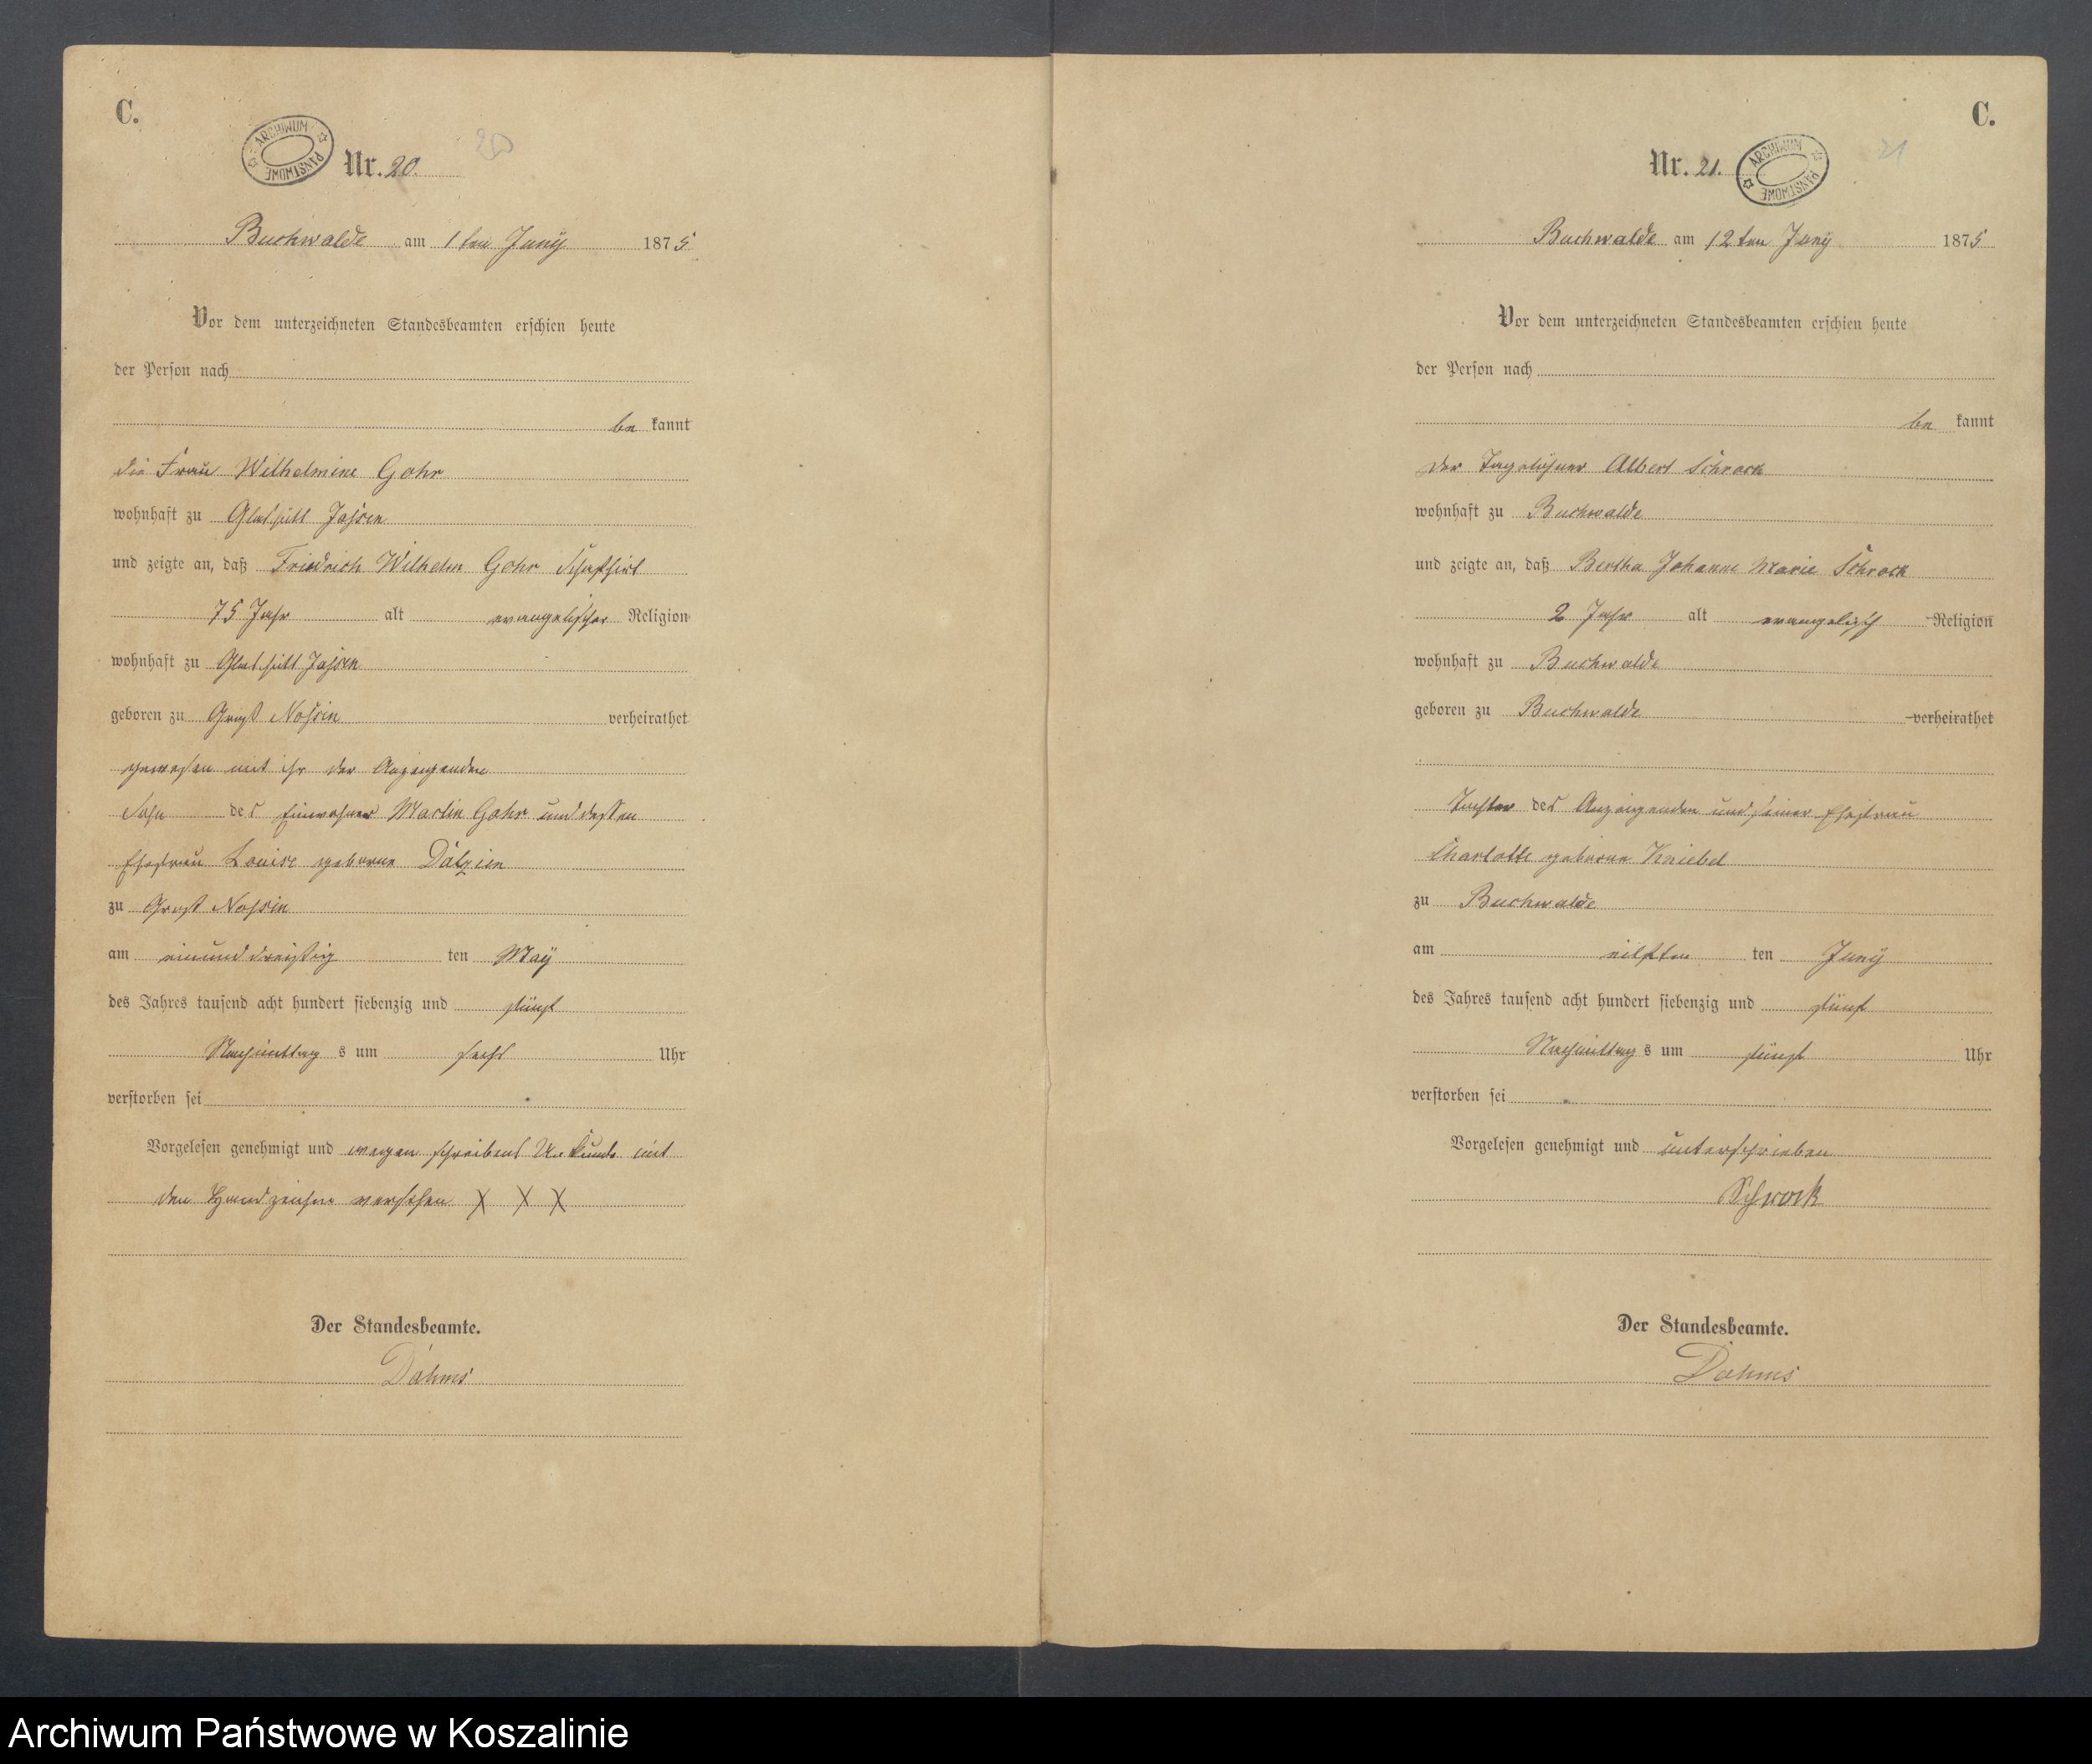 C.
ARCHIWUM PAŃSTWOWE
Nr. 20.
20
Buchwalde am 1ten Juny 1875
Vor dem unterzeichneten Standesbeamten erschien heute
der Person nach
be kannt
die Frau Wilhelmine Gohr
wohnhaft zu Glashütt Jassen
und zeigte an, daß Friedrich Wilhelm Gohr
75 Jahr alt evangelischer Religion
wohnhaft zu Glashütt Jassen
geboren zu Nossin verheirathet
gewesen mit ihr der Anzeigenden
Sohn des Einwohner Martin Gohr und dessen
Ehefrau Louise geborne
zu Nossin
am einunddreißig ten May
des Jahres tausend acht hundert siebenzig und fünf
Nachmittag s um sechs Uhr
verstorben sei
Vorgelesen genehmigt und wegen schreibens mit
den Handzeichen versehen X X X
Der Standesbeamte.
Dahms
C.
Nr. 21.
ARCHIWUM PAŃSTWOWE
21
Buchwalde am 12ten Juny 1875
Vor dem unterzeichneten Standesbeamten erschien heute
der Person nach
be kannt
der Tagelöhner Albert Schrock
wohnhaft zu Buchwalde
und zeigte an, daß Bertha Johanne Marie Schrock
2 Jahr alt evangelisch Religion
wohnhaft zu Buchwalde
geboren zu Buchwalde verheirathet
Tochter des Anzeigenden und seiner Ehefrau
Charlotte geborne Kniebel
zu Buchwalde
am eilften ten Juny
des Jahres tausend acht hundert siebenzig und fünf
Nachmittag s um fünf Uhr
verstorben sei
Vorgelesen genehmigt und unterschrieben
Schrock
Der Standesbeamte.
Dahms
Archiwum Państwowe w Koszalinie